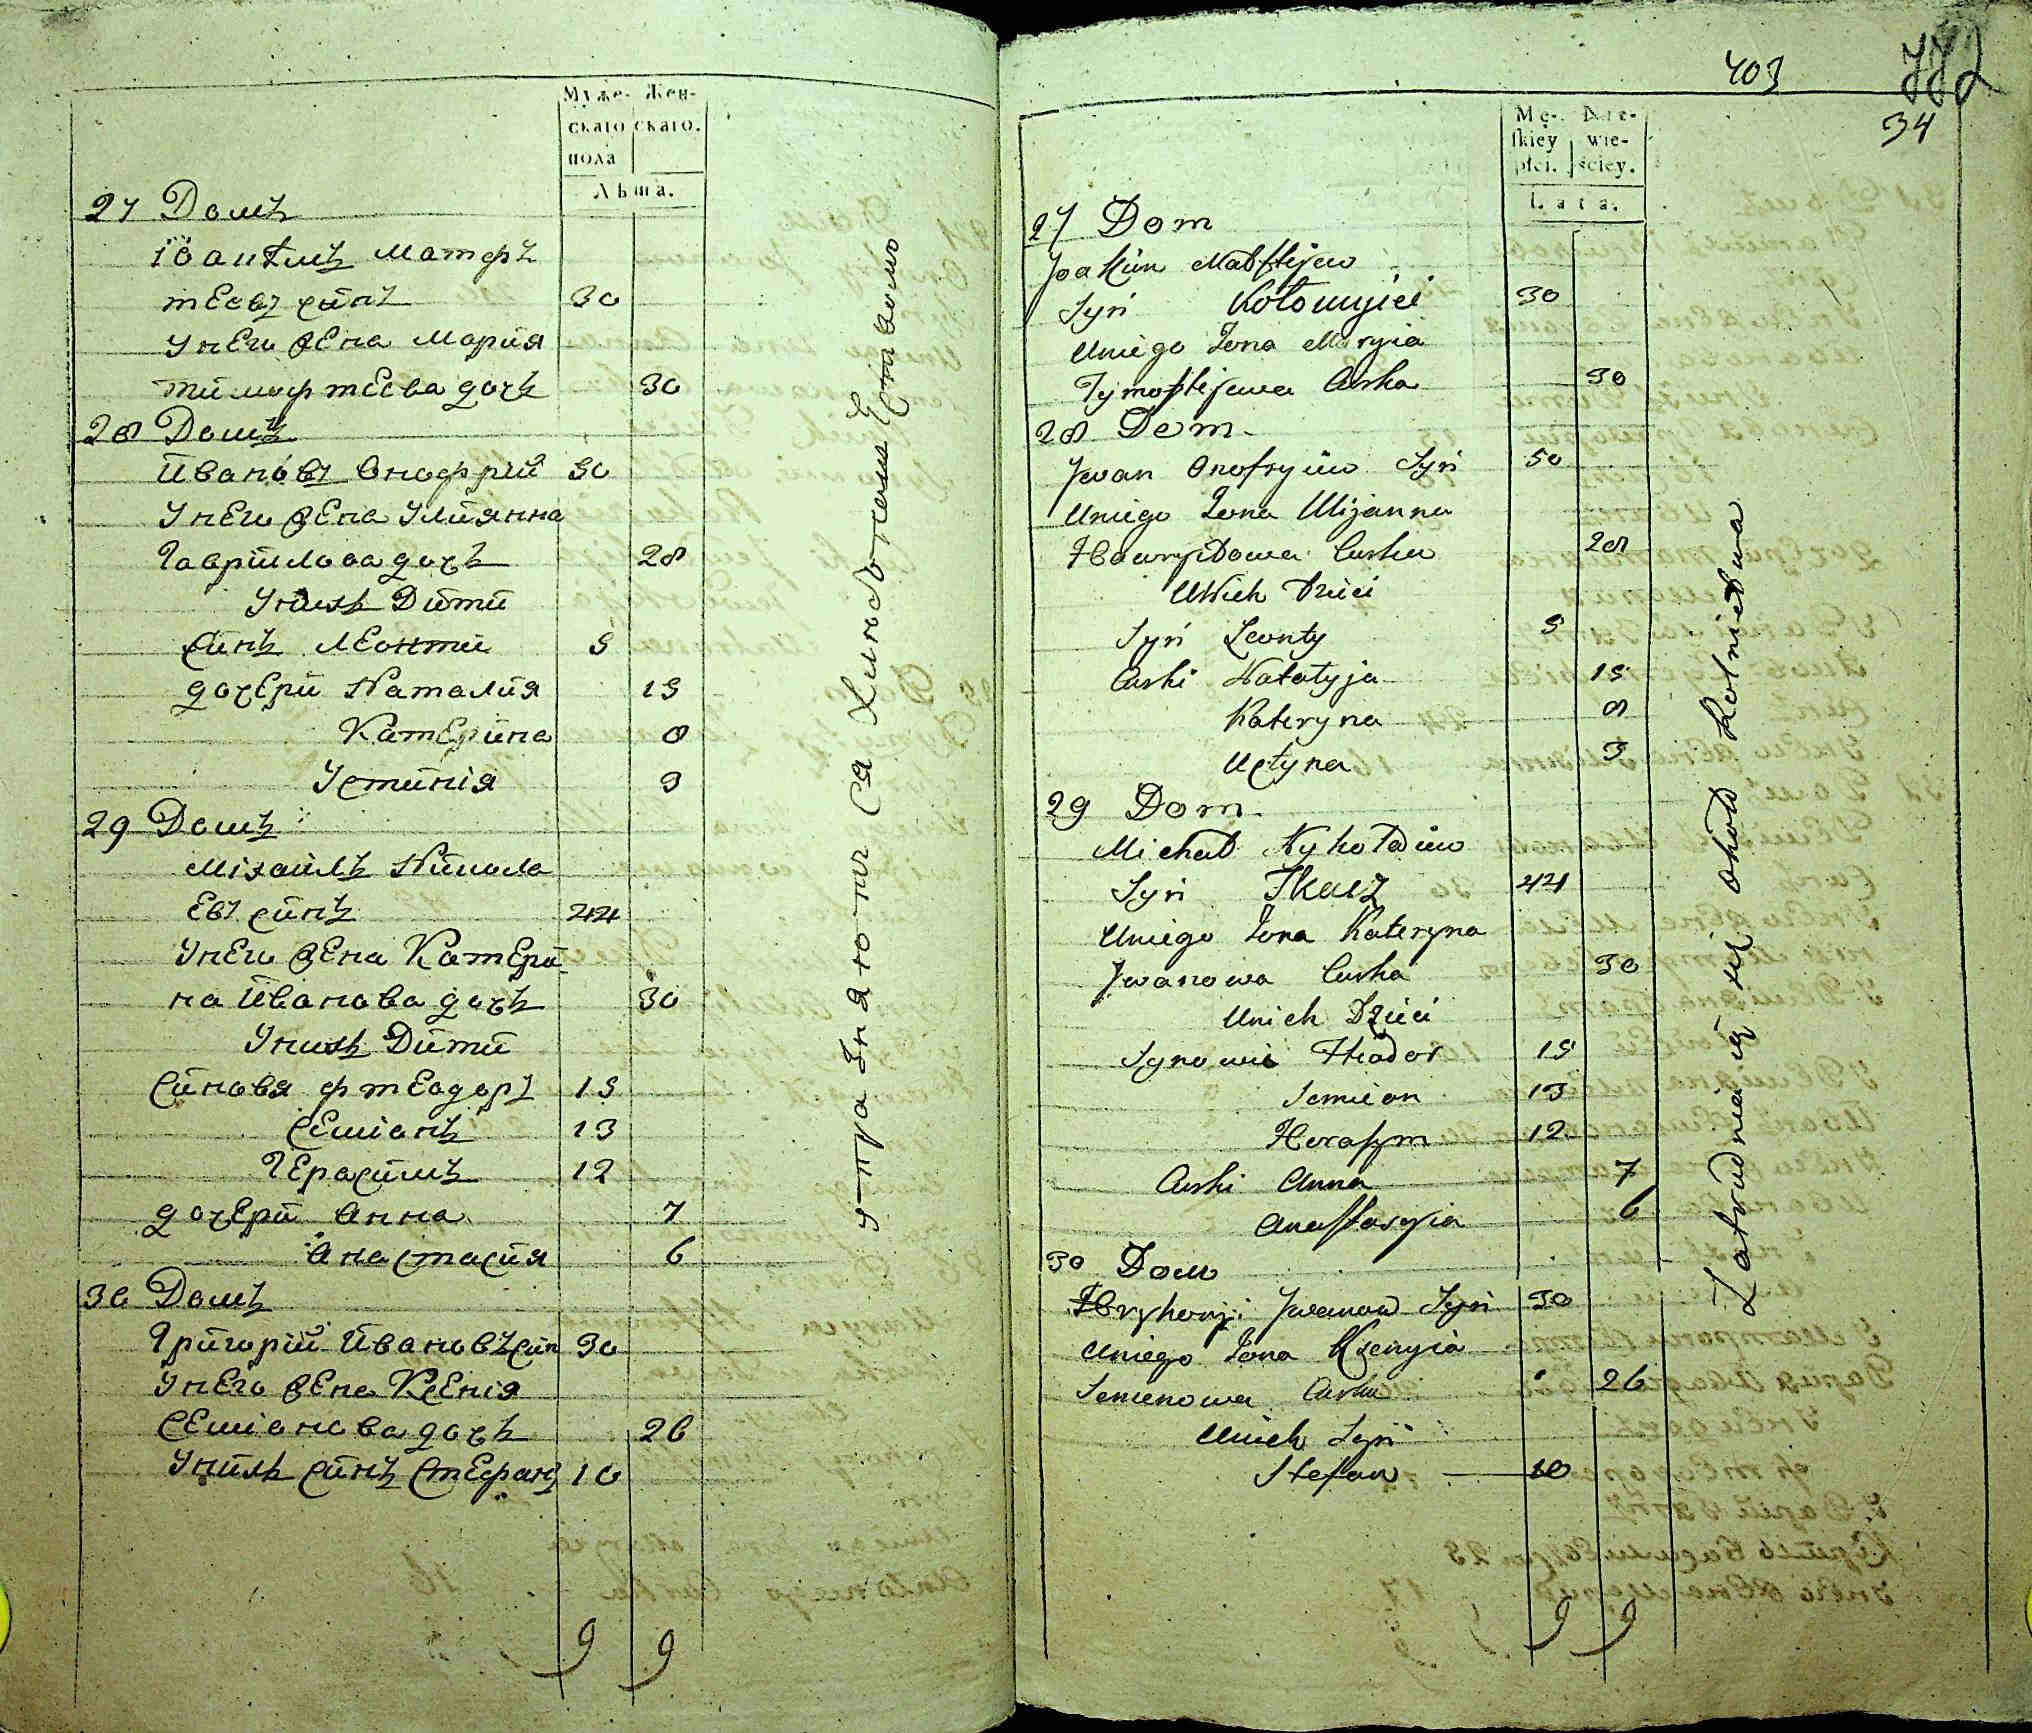 Муже- Жен-
скаго скаго.
пола
Лѣта.
27 Домъ
Іоакімъ Матфѣ
тЕовъ сынъ 30
УнЕго жЕна Мария
тимофтЕЕва дочь 30
28 Домъ
Ивановъ Онофрій 50
УнЕго жЕна Улиянна
Гаврилова дочь 28
Унихъ Дити
Синъ ЛЕонти 5
дочЕри Наталия 15
КатЕрина 8
Устинія 3
29 Домъ
Міхаилъ Никола
Евъ синъ 44
УнЕго жЕна КатЕри
на Иванова дочь 30
Унихъ Дити
Синовя фтЕодоръ 15
СЕміонъ 13
ГЕрасимъ 12
дочЕри Анна 7
Анастасия 6
30 Домъ
Григорій Ивановъ син 30
УнЕго жЕна КсЕнія
СЕміонова дочь 26
Унихъ синъ СтЕфанъ 10
9 9
403
34
Mę- Nie-
skiey wie-
płci. ściey.
Lata.
27 Dom
Joakim Matftijew
Syn Kołomyjici 30
Uniego Żona Maryia
Tymoftijewa Curka 30
28 Dom
Jwan Onofryiiw Syn 50
Uniego Żona Ulijanna
Hawryłowa Curka 28
Unich Dzieci
Syn Leonty 5
Curki Natalyja 15
Kateryna 8
Uctyna 3
29 Dom
Michał Nykołaiiw
Syn Tkacz 44
Uniego Żona Kateryna
Jwanowa Curka 30
Unich Dzieci
Synowie Fteodor 15
Semieon 13
Herasym 12
Curki Anna 7
Anastasyia 6
30 Dom
Hryhoryi Jwanow Syn 30
Uniego Żona Ksenyia
Semenowa Curka 26
Unich Syn
Stefan 10
9 9
Zatrudniaią się około Rolnictwa